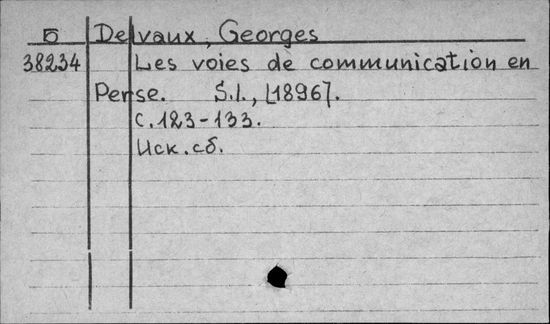 Б Delvaux, Georges
38234 Les voies de communication en
Perse. S.l., [1896].
С. 123-133.
Иск. сб.